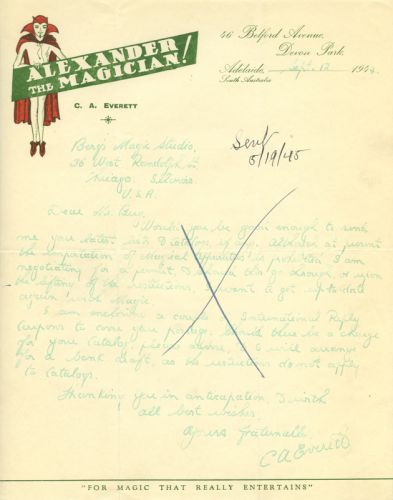 ALEXANDER
THE MAGICIAN!
C. A. EVERETT
46 Belford Avenue,
Devon Park.
Adelaide, Sept. 12 194
South Australia
Berg's Magic Studio,
30 West Randolph St
Chicago. Illinois.
U.S.A.
Sent
5/19/45
Dear Mr. Berg,
Would you be good enough to send
me your latest list & catalog, if any. Although at present
the importation of Magical Apparatus is prohibited I am
negotiating for a permit, & should this go through, or upon
the lifting of the restrictions, I want to get up to date
again with Magic.
I am enclosing a couple of International Reply
Coupons to cover your postage. Should there be a charge
for your Catalog, please advise, & I will arrange
for a bank draft, as the restrictions do not apply
to Catalogs.
Thanking you in anticipation, & with
all best wishes,
Yours fraternally
C A Everett
"FOR MAGIC THAT REALLY ENTERTAINS"